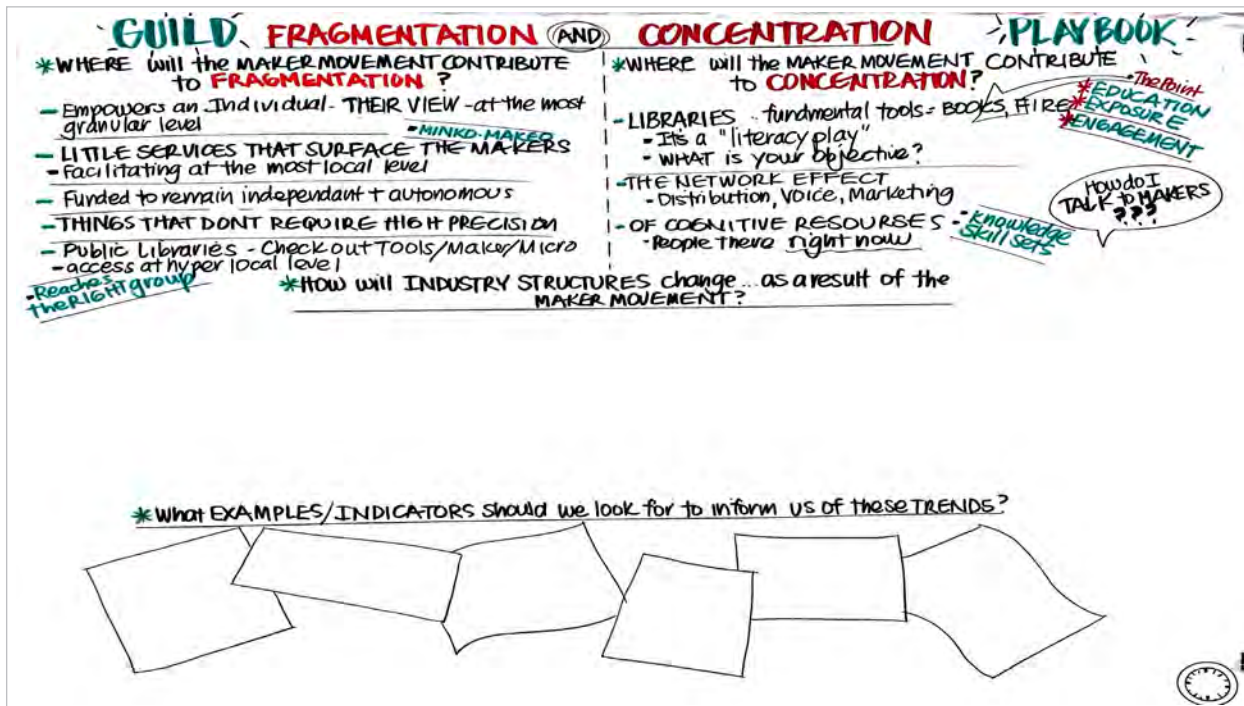 GUILD FRAGMENTATION AND CONCENTRATION PLAYBOOK
*WHERE will the MAKER MOVEMENT CONTRIBUTE
to FRAGMENTATION?
- Empowers an Individual - THEIR VIEW - at the most
granular level
- MINKO-MAKEO
- LITTLE SERVICES THAT SURFACE THE MAKERS
- Facilitating at the most local level
- Funded to remain independant + autonomous
- THINGS THAT DONT REQUIRE HIGH PRECISION
- Public Libraries - Check out TOOLS/Maker/Micro
- access at hyper local level
- Reaches
the RIGHT group
*WHERE will the MAKER MOVEMENT CONTRIBUTE
to CONCENTRATION?
- The Point
*EDUCATION
*EXPOSURE
*ENGAGEMENT
- LIBRARIES .. fundmental tools = BOOKS, FIRE
- It's a "literacy play"
- WHAT is your objective?
- THE NETWORK EFFECT
- Distribution, Voice, Marketing
How do I
TALK to MAKERS
???
- OF COGNITIVE RESOURSES
- People there right now
- Knowledge
- Skill sets
*HOW will INDUSTRY STRUCTURES change... as a result of the
MAKER MOVEMENT?
*What EXAMPLES/INDICATORS should we look for to inform us of these TRENDS?